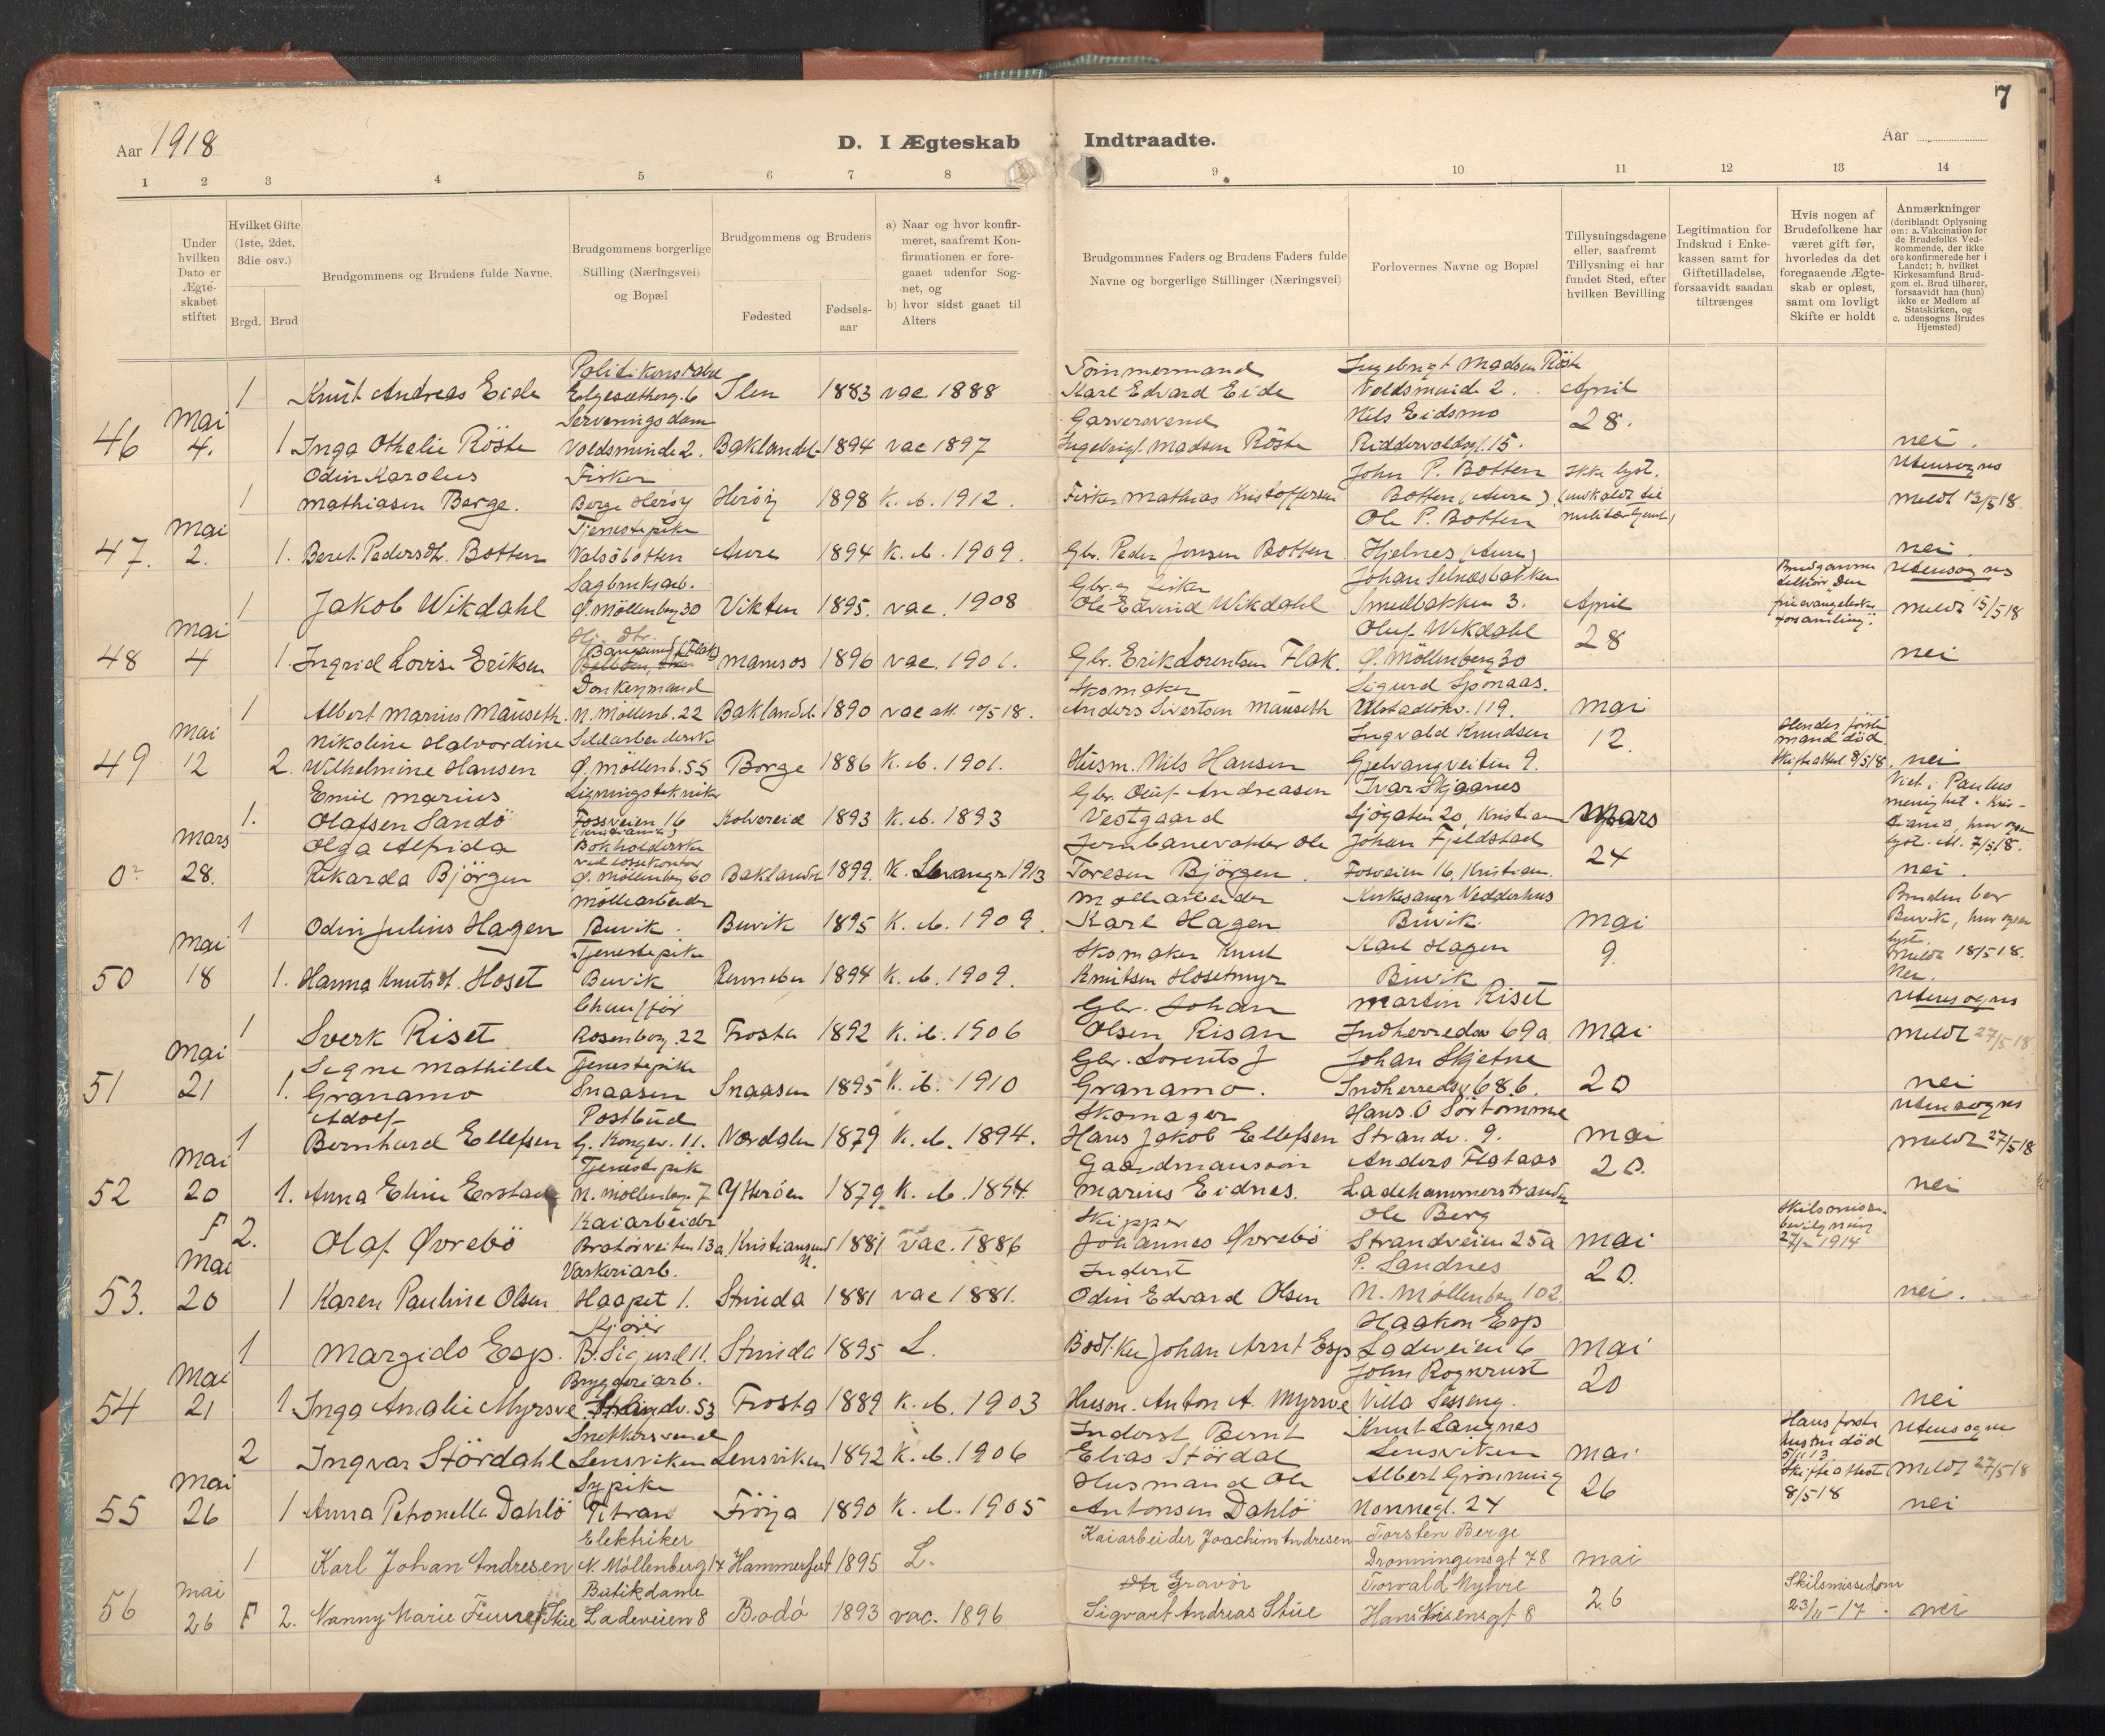 7
Aar 1918
D. I Ægteskab Indtraadte.
Aar
1 2 3 4 5 6 7 8 9 10 11 12 13 14
Under hvilken Dato er Ægteskabet stiftet
Hvilket Gifte (1ste, 2det, 3die osv.)
Brgd. Brud
Brudgommens og Brudens fulde Navne.
Brudgommens borgerlige Stilling (Næringsvei) og Bopæl
Brudgommens og Brudens
Fødested
Fødsels-aar
a) Naar og hvor konfirmeret, saafremt Konfirmationen er foregaaet udenfor Sognet, og
b) hvor sidst gaaet til Alters
Brudgommnes Faders og Brudens Faders fulde Navne og borgerlige Stillinger (Næringsvei)
Forlovernes Navne og Bopæl
Tillysningsdagene eller, saafremt Tillysning ei har fundet Sted, efter hvilken Bevilling
Legitimation for Indskud i Enkekassen samt for Giftetilladelse, forsaavidt saadan tiltrænges
Hvis nogen af Brudefolkene har været gift før, hvorledes da det foregaaende Ægteskab er opløst, samt om lovligt Skifte er holdt
Anmærkninger
(deriblandt Oplysning om: a. Vakcination for de Brudefolks Vedkommende, der ikke ere konfirmerede her i Landet; b. hvilket Kirkesamfund Brudgom el. Brud tilhører, forsaavidt han (hun) ikke er Medlem af Statskirken, og c. udensogns Brudes Hjemsted)
Politikonstabel Tømmermand Ingebrigt Madsen Röste
1 Knut Andreas Eide Elgesæterg. 6 Ilen 1883 vac. 1888 Karl Edvard Eide Voldsminde 2. April
Mai Serveringsdame Garversvend Nils Eidsmo 28.
46 4. 1 Inga Othelie Röste Voldsminde 2. Baklandet 1894 vac 1897 Ingebrigt Madsen Röste Riddervoldsgt. 15. nei.
Odin Karolus Fisker John P. Botten Ikke lyst. Utensogns
1 Mathiasen Berge. Berge Heröy Heröy 1898 K. M. 1912. Fisker Mathias Kristoffersen Botten (Aure) meldt 13/5 18.
Mai Tjenestepike Ole P. Botten
47. 2. 1. Beret Pedersdt. Botten Valsöbotten Aure 1894 K. M. 1909. Gbr. Peder Jonsen Botten Hjelnes (Aure) nei.
Sagbruksarb. Gbr. og Fisker Johan Selnæsbakken Brudgommen tilhör Den frie evangeliske forsamling. Utensogns
1 Jakob Wikdahl Ø. Möllenberg 30 Vikten 1895. vac. 1908 Ole Edvind Wikdahl Smedbakken 3. April meldt 15/5 18
Mai Hj. dtr. Oluf Wikdahl 28
48 4 1. Ingrid Lovise Eriksen Namsos 1896 vac. 1901. Gbr. Erik Lorentsen Flak. Ø. Möllenberg 30 nei
Donkeymand Skomaker Sigurd Sponaas.
1 Albert Marius Mauseth. N. Möllenb. 22 Baklandet 1890 vac att. 10/5 18. Anders Sivertsen Mauseth 119. Mai
Mai Nikoline Halvordine Ingvald Knudsen 12. Hendes förste mand död
49 12 2. Wilhelmine Hansen Ø. Möllenb. 55 Borge 1886 K. M. 1901. Husm. Nils Hansen Gjelvangveiten 9. Skifteattest 8/5 18. nei
Emil Marius Ligningstekniker Gbr. Oluf Andreasen Ivar Skjaanes Viet i Paulus
1. Olafsen Sandö Fossveien 16 Kolvereid 1893 K. M. 1893 Vestgaard Sjögaten 20, Kristian Mars menighet i Kristiania, hvor ogsaa
Mars Olga Alfrida (Kristiania) Bokholderske Jernbanevakter Ole Johan Fjeldstad 24 lyst. M. 7/5 18.
0² 28. Rikarda Björgen Ø. Möllenberg 60 Baklandet 1899. K. Levanger 1913 Toresen Björgen. Fosveien 16, Kristian. nei.
Möllearbeider Möllearbeider Kirkesanger Vedderhus Bruden bor
1 Odin Julius Hagen Buvik. Buvik 1895 K. M. 1909. Karl Hagen Buvik. Mai Buvik, hvor ogsaa lyst.
Mai Tjenestepike Skomaker Knut Karl Hagen 9. meldt 18/5 18.
50 18 1. Hanna Knutsdt. Hoset Buvik Rennebu 1894 K. M. 1909. Knutsen Hosetmyr Buvik Nei.
Chauffør Gbr. Johan Martin Riset Utensogns
1 Sverk Riset Rosenborg. 22 Frosta 1892 K. M. 1906 Olsen Risan Indherredsv. 69a Mai meldt 27/5 18
Mai Signe Mathilde Tjenestepike Gbr. Lorents J Johan Skjetne
51 21 1. Granamo Snaasen Snaasen 1895 K. M. 1910 Granamo. Indherredsv. 686 20 nei
Adolf Postbud Skomager Hans. O Sörtömme Utensogns
1 Bernhard Ellefsen G. Kongev. 11. Værdalen 1879 K. M. 1894. Hans Jakob Ellefsen Strandv. 9. Mai meldt 27/5 18
Mai Tjenestepik Gaardmandssön Anders Flataas 20.
52 20 1. Anna Elise N. Möllenbg. 7 Ytteröen 1879. K. M. 1894. Marius Eidnes. Ladehammerstranden nei
Kaiarbeider Skipper Ole Berg Skilsmissebevilgning
F 2. Olaf Øvrebö Bratörveiten 13a Kristiansund N. 1881 vac. 1886 Johannes Øvrebö Strandveien 25a Mai 1914
Mai Vaskeriarb. Inderst P. Sandnes 20.
53. 20 1 Karen Pauline Olsen Haapet 1. Strinda 1881 vac 1881. Odin Edvard Olsen N. Möllenberg 102. nei.
Kjörer Haakon Esp
1 Margido Esp. B. Sigurd 11. Strinda 1895 L. Bödtker Johan Arnt Esp Ladeveien 6 Mai
Mai Bryggeriarb. John Rognrust 20
54 21 1 Inga Amalie Myrsve Strandv. 53 Frosta 1889 K. M. 1903 Husm. Anton A. Myrsve Villa Tesseng. nei
Snekkersvend Inderst Bernt Knut Langnes Hans förste hustru död Utensogns
2 Ingvar Stördahl Lensviken Lensviken 1892 K. M. 1906 Elias Stördal Lensviken Mai 5/11 13
Mai Sypike Husmand Ole Albert Grönning 26 Skifteattest 8/5 18 Meldt 27/5 18
55 26 1 Anna Petronella Dahlö Titran Fröya 1890 K. M. 1905 Antonsen Dahlö Nonnegt. 24 nei
Elektriker Kaiarbeider Joachim Andresen Torsten Berge
1 Karl Johan Andresen N. Möllenberg 17 Hammerfest 1895 L. Dronningensgt 78 Mai
Mai Butikdame Gravör Torvald Myhre 26 Skilsmissedom
56 26 F 2. Nanny Marie Ladeveien 8 Bodö 1893 vac. 1896 Sigvart Andreas Stue Hans Nissensgt 8 23/11-17. nei